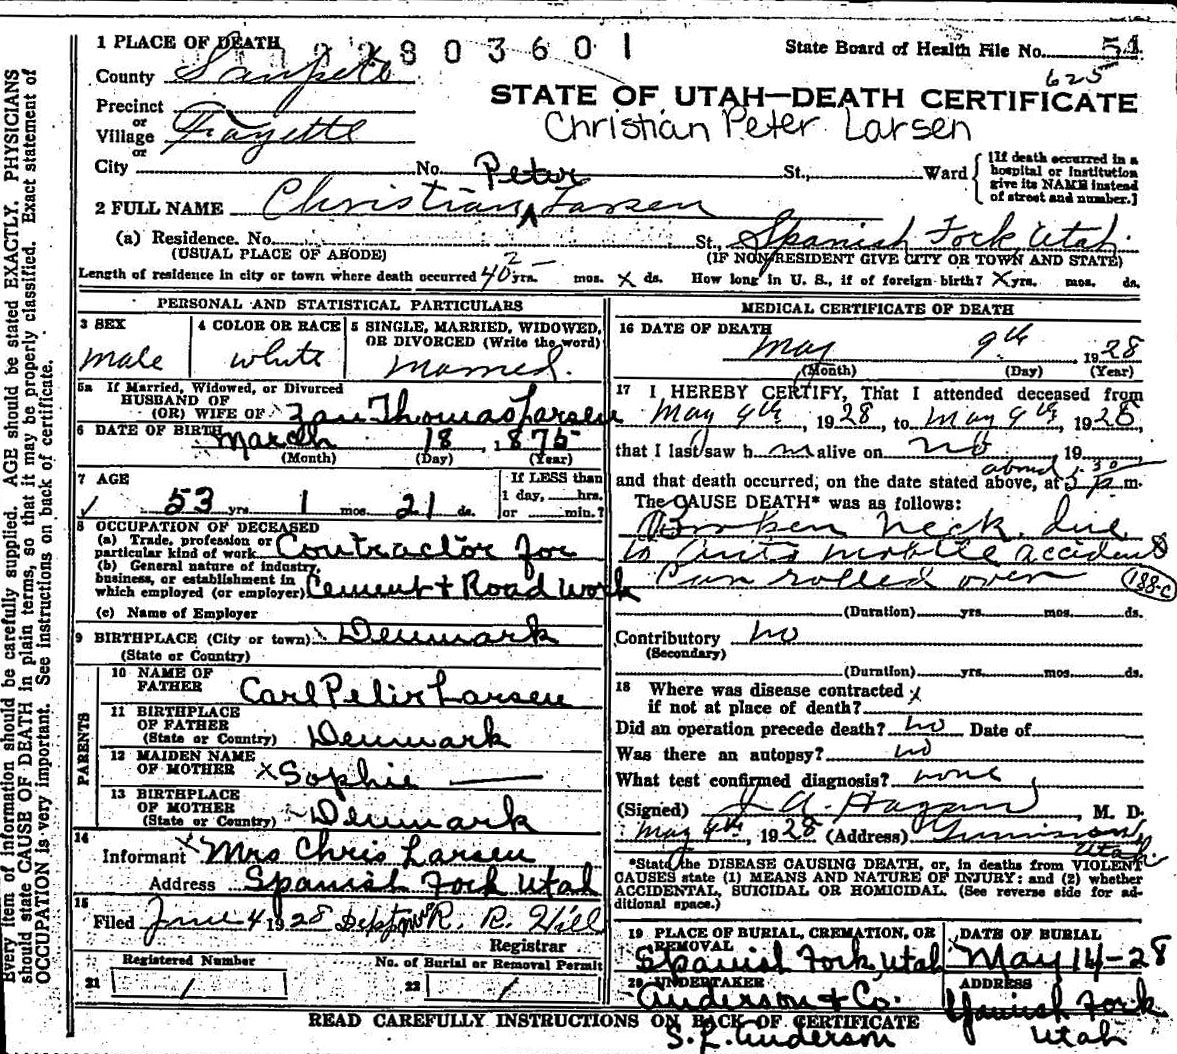 1 PLACE OF DEATH
2803601
State Board of Health File No. 51
625
County Sanpete
STATE OF UTAH—DEATH CERTIFICATE
Christian Peter Larsen
Precinct
or
Village Fayette
or
City No. St., Ward
[If death occurred in a
hospital or institution
give its NAME instead
of street and number.]
Peter
2 FULL NAME Christian ^ Larsen
(a) Residence. No. St., Spanish Fork, Utah.
(USUAL PLACE OF ABODE) (IF NON RESIDENT GIVE CITY OR TOWN AND STATE)
Length of residence in city or town where death occurred yrs. mos. x ds. How long in U. S., if of foreign birth? x yrs. mos. ds.
PERSONAL AND STATISTICAL PARTICULARS
3 SEX
male
4 COLOR OR RACE
white
5 SINGLE, MARRIED, WIDOWED,
OR DIVORCED (Write the word)
Married.
5a If Married, Widowed, or Divorced
HUSBAND OF
(OR) WIFE OF Thomas Larsen
6 DATE OF BIRTH March 18, 1875
(Month) (Day) (Year)
7 AGE
53 yrs. 1 mos. 21 ds.
If LESS than
1 day, hrs.
or min.?
8 OCCUPATION OF DECEASED
(a) Trade, profession or
particular kind of work Contractor for
(b) General nature of industry,
business, or establishment in
which employed (or employer) Cement + Road Work
(c) Name of Employer
9 BIRTHPLACE (City or town) Denmark
(State or Country)
PARENTS
10 NAME OF
FATHER Carl Larsen
11 BIRTHPLACE
OF FATHER
(State or Country) Denmark
12 MAIDEN NAME
OF MOTHER x Sophie —
13 BIRTHPLACE
OF MOTHER
(State or Country) Denmark
14
Informant Mrs Chris Larsen
Address Spanish Fork Utah
15
Filed June 4 1928 R. R. Hill
Registrar
Registered Number
21 1
No. of Burial or Removal Permit
22 1
MEDICAL CERTIFICATE OF DEATH
16 DATE OF DEATH
May 9th, 1928
(Month) (Day) (Year)
17 I HEREBY CERTIFY, That I attended deceased from
May 9th, 1928, to May 9th, 1928,
that I last saw h m alive on no, 19
and that death occurred, on the date stated above, at m.
The CAUSE DEATH* was as follows:
Broken neck due
to auto mobile accident
Car rolled over 188-c
(Duration) yrs. mos. ds.
Contributory no
(Secondary)
(Duration) yrs. mos. ds.
18 Where was disease contracted
if not at place of death? x
Did an operation precede death? no Date of
Was there an autopsy? no
What test confirmed diagnosis? none
(Signed) J. A. Hagan, M. D.
May 9th, 1928 (Address) Gunnison,
Utah
*State the DISEASE CAUSING DEATH, or, in deaths from VIOLENT
CAUSES state (1) MEANS AND NATURE OF INJURY: and (2) whether
ACCIDENTAL, SUICIDAL OR HOMICIDAL. (See reverse side for ad-
ditional space.)
19 PLACE OF BURIAL, CREMATION, OR
REMOVAL
Spanish Fork, Utah
DATE OF BURIAL
May 14-28
20 UNDERTAKER
Anderson & Co.
S. L. Anderson
ADDRESS
Spanish Fork
Utah
READ CAREFULLY INSTRUCTIONS ON BACK OF CERTIFICATE
Every item of information should be carefully supplied. AGE should be stated EXACTLY. PHYSICIANS
should state CAUSE OF DEATH in plain terms, so that it may be properly classified. Exact statement of
OCCUPATION is very important. See instructions on back of certificate.